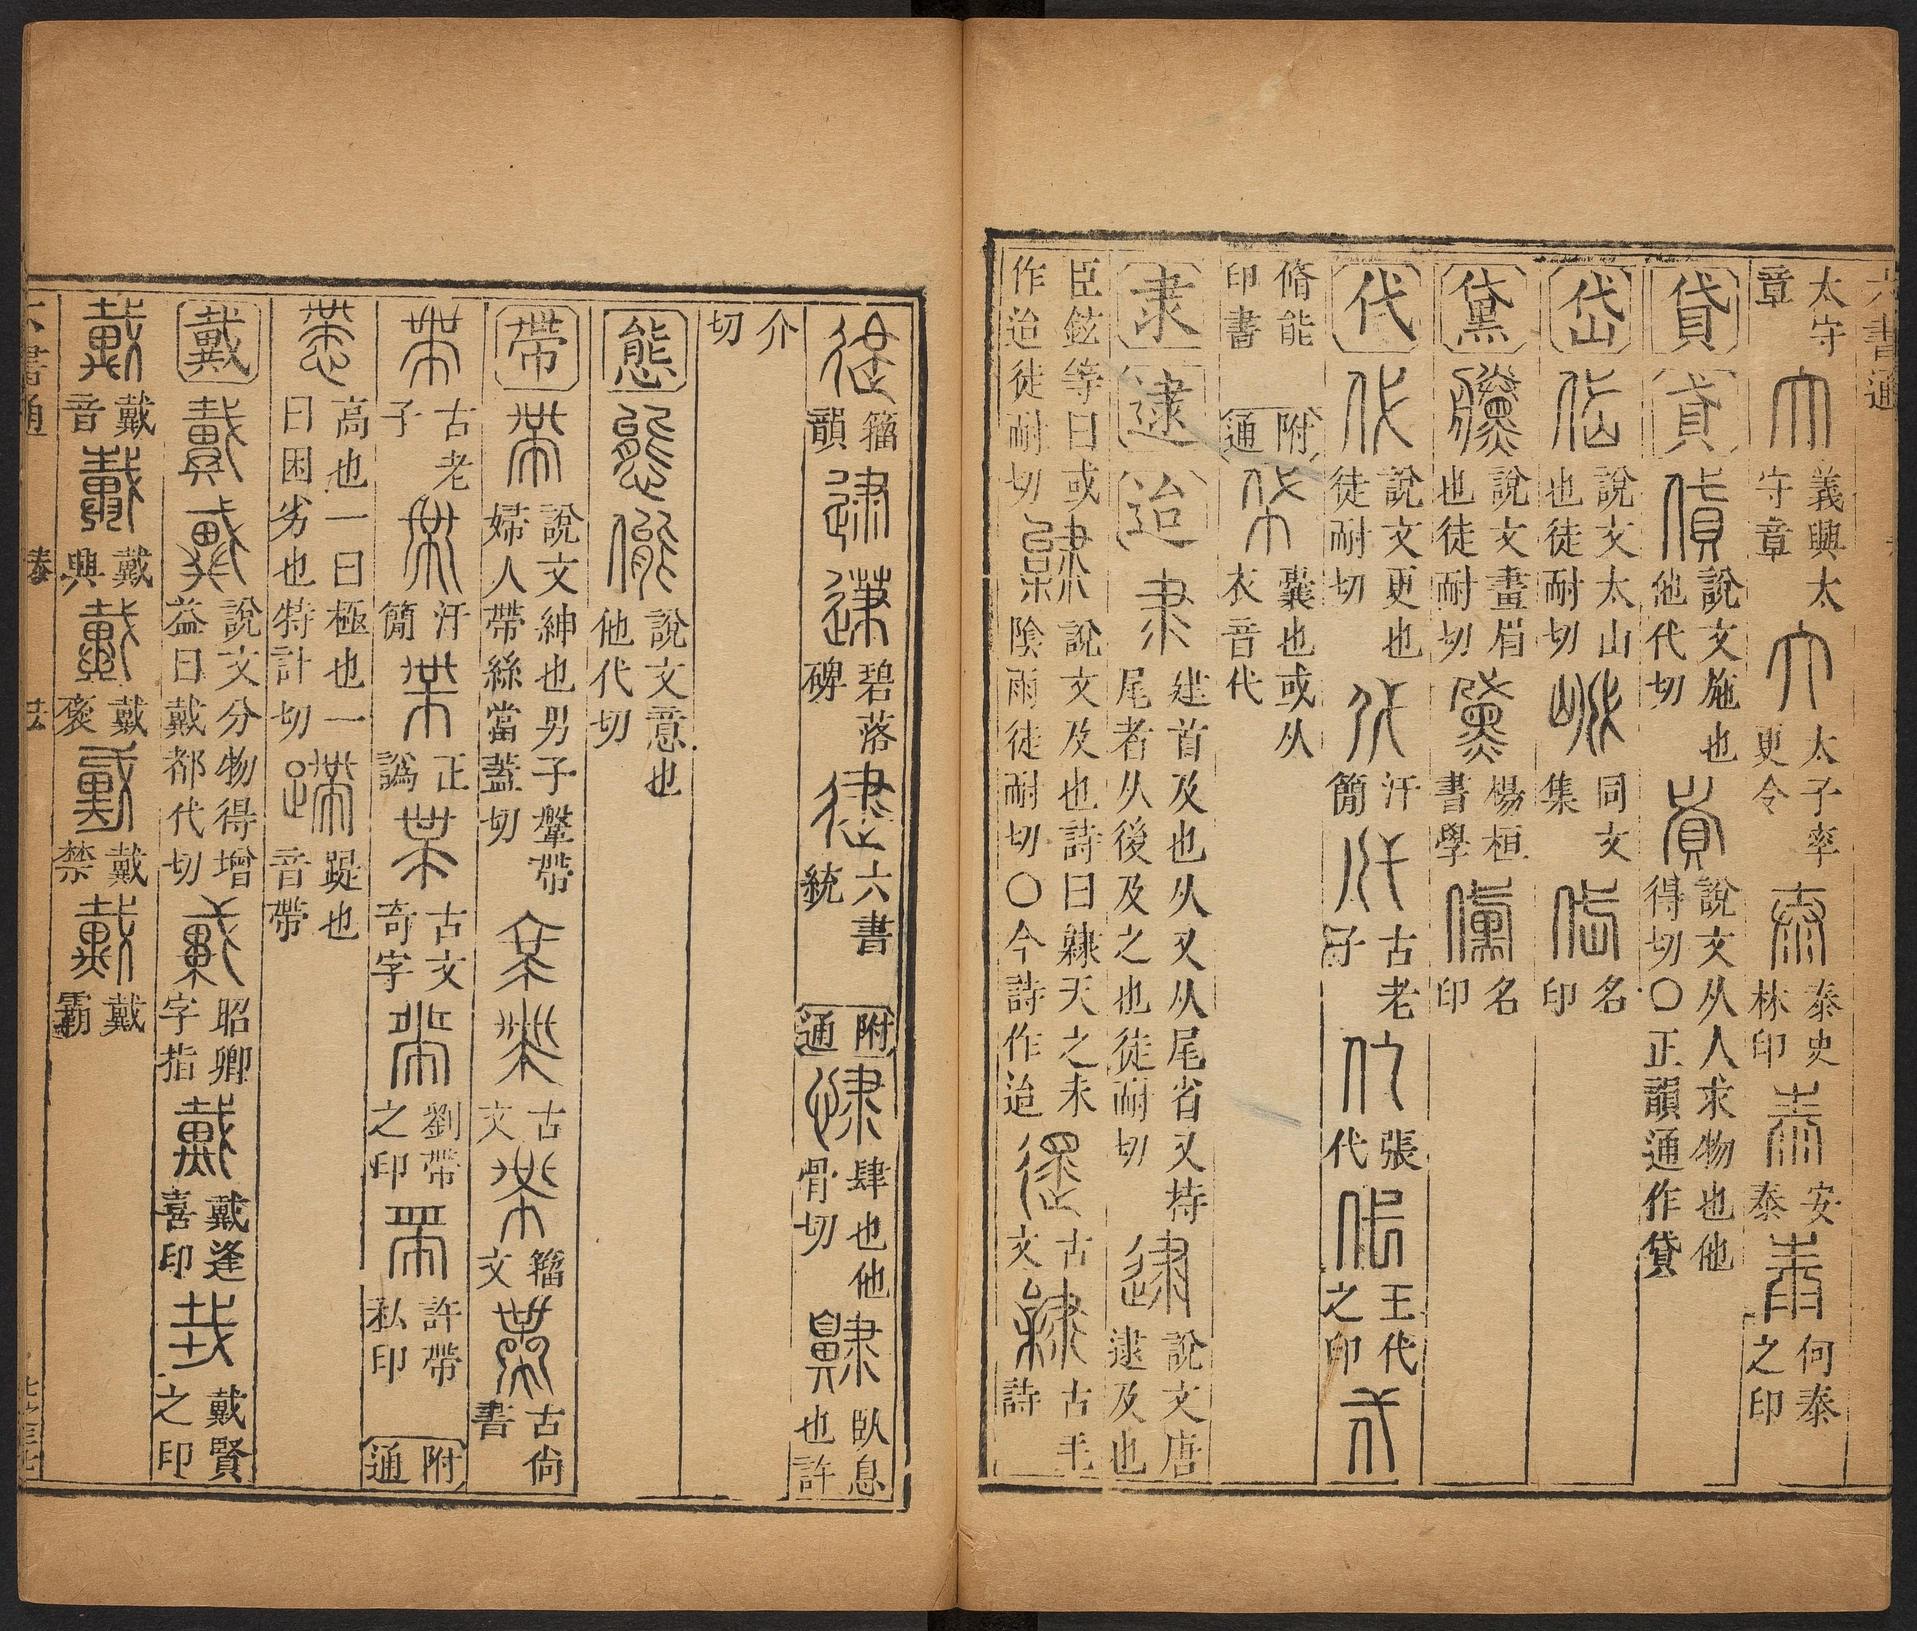 六書通
太守章 義興太守章 太子率更令 泰史林印 安泰 何泰之印
貸 貣 說文施也他代切 說文从人求物也他得切〇正韻通作貸
岱 說文太山也徒耐切 同文集 名印
黛 說文畫眉也徒耐切 楊桓書學 名印
代 說文更也徒耐切 汗簡 古老子 張代 王代之印
脩能印書 附通 囊也或从衣音代
隶 逮 迨 建首及也从又从尾省又持尾者从後及之也徒耐切 說文唐逮及也
臣鉉等曰或作迨徒耐切 說文及也詩曰隸天之未陰雨徒耐切〇今詩作迨 古文 古毛詩
籀韻 碧落碑 六書統 附通 肆也他骨切 臥息也許
介切
態 說文意也他代切
帶 說文紳也男子鞶帶婦人帶絲當蓋切 古文 籀文 古尙書
古老子 汗簡 正譌 古文奇字 劉帶之印 許帶私印 附通
高也一曰極也一曰困劣也特計切 踶也音帶
戴 說文分物得增益曰戴都代切 昭卿字指 戴逢喜印 戴賢之印
戴音 戴興 戴褒 戴禁 戴霸
六書通 泰 去